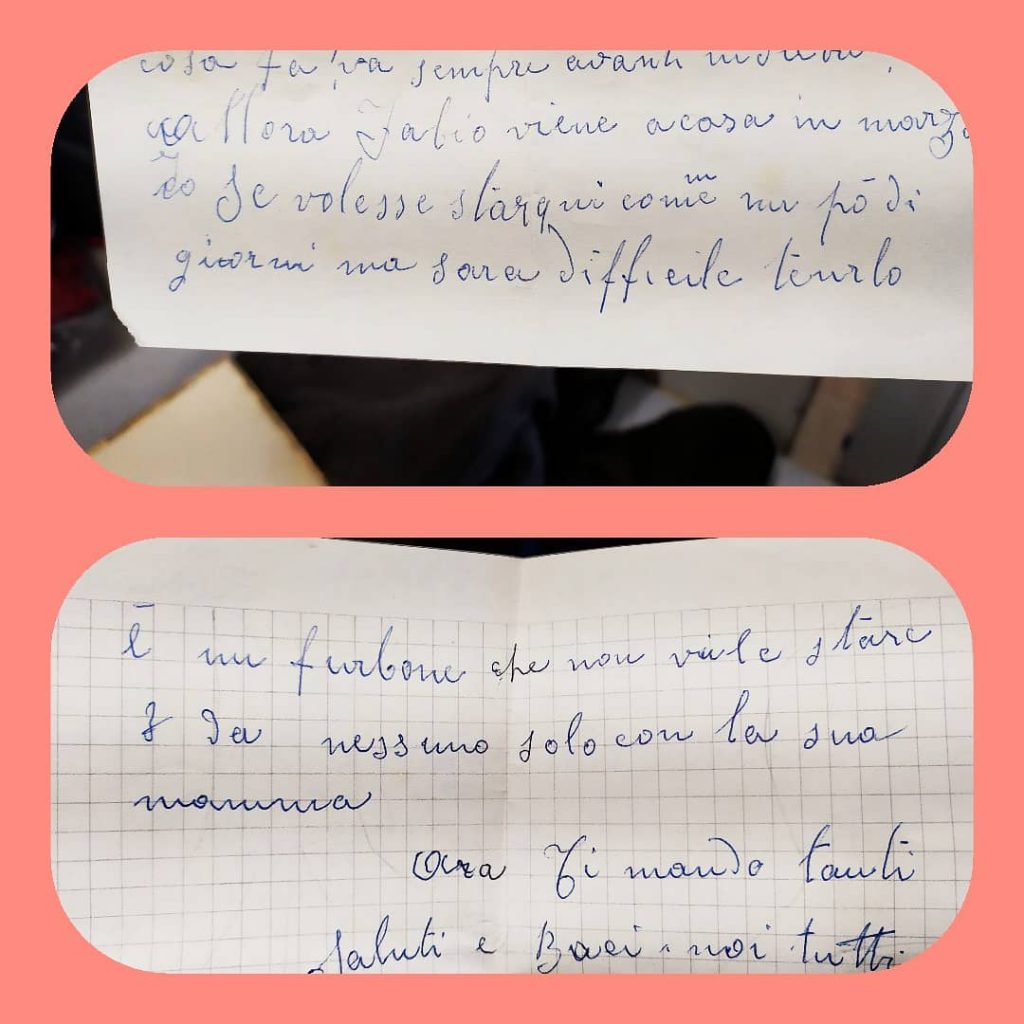 cosa fa va sempre avanti indietro,
allora Fabio viene a casa in marzo
Io se volesse star qui come un pō di
giorni ma sara difficile tenirlo
ē un furbone che non vule stāre
da nessuno solo con la sua
mamma
Ora Ti mando tanti
saluti e Baci noi tutti